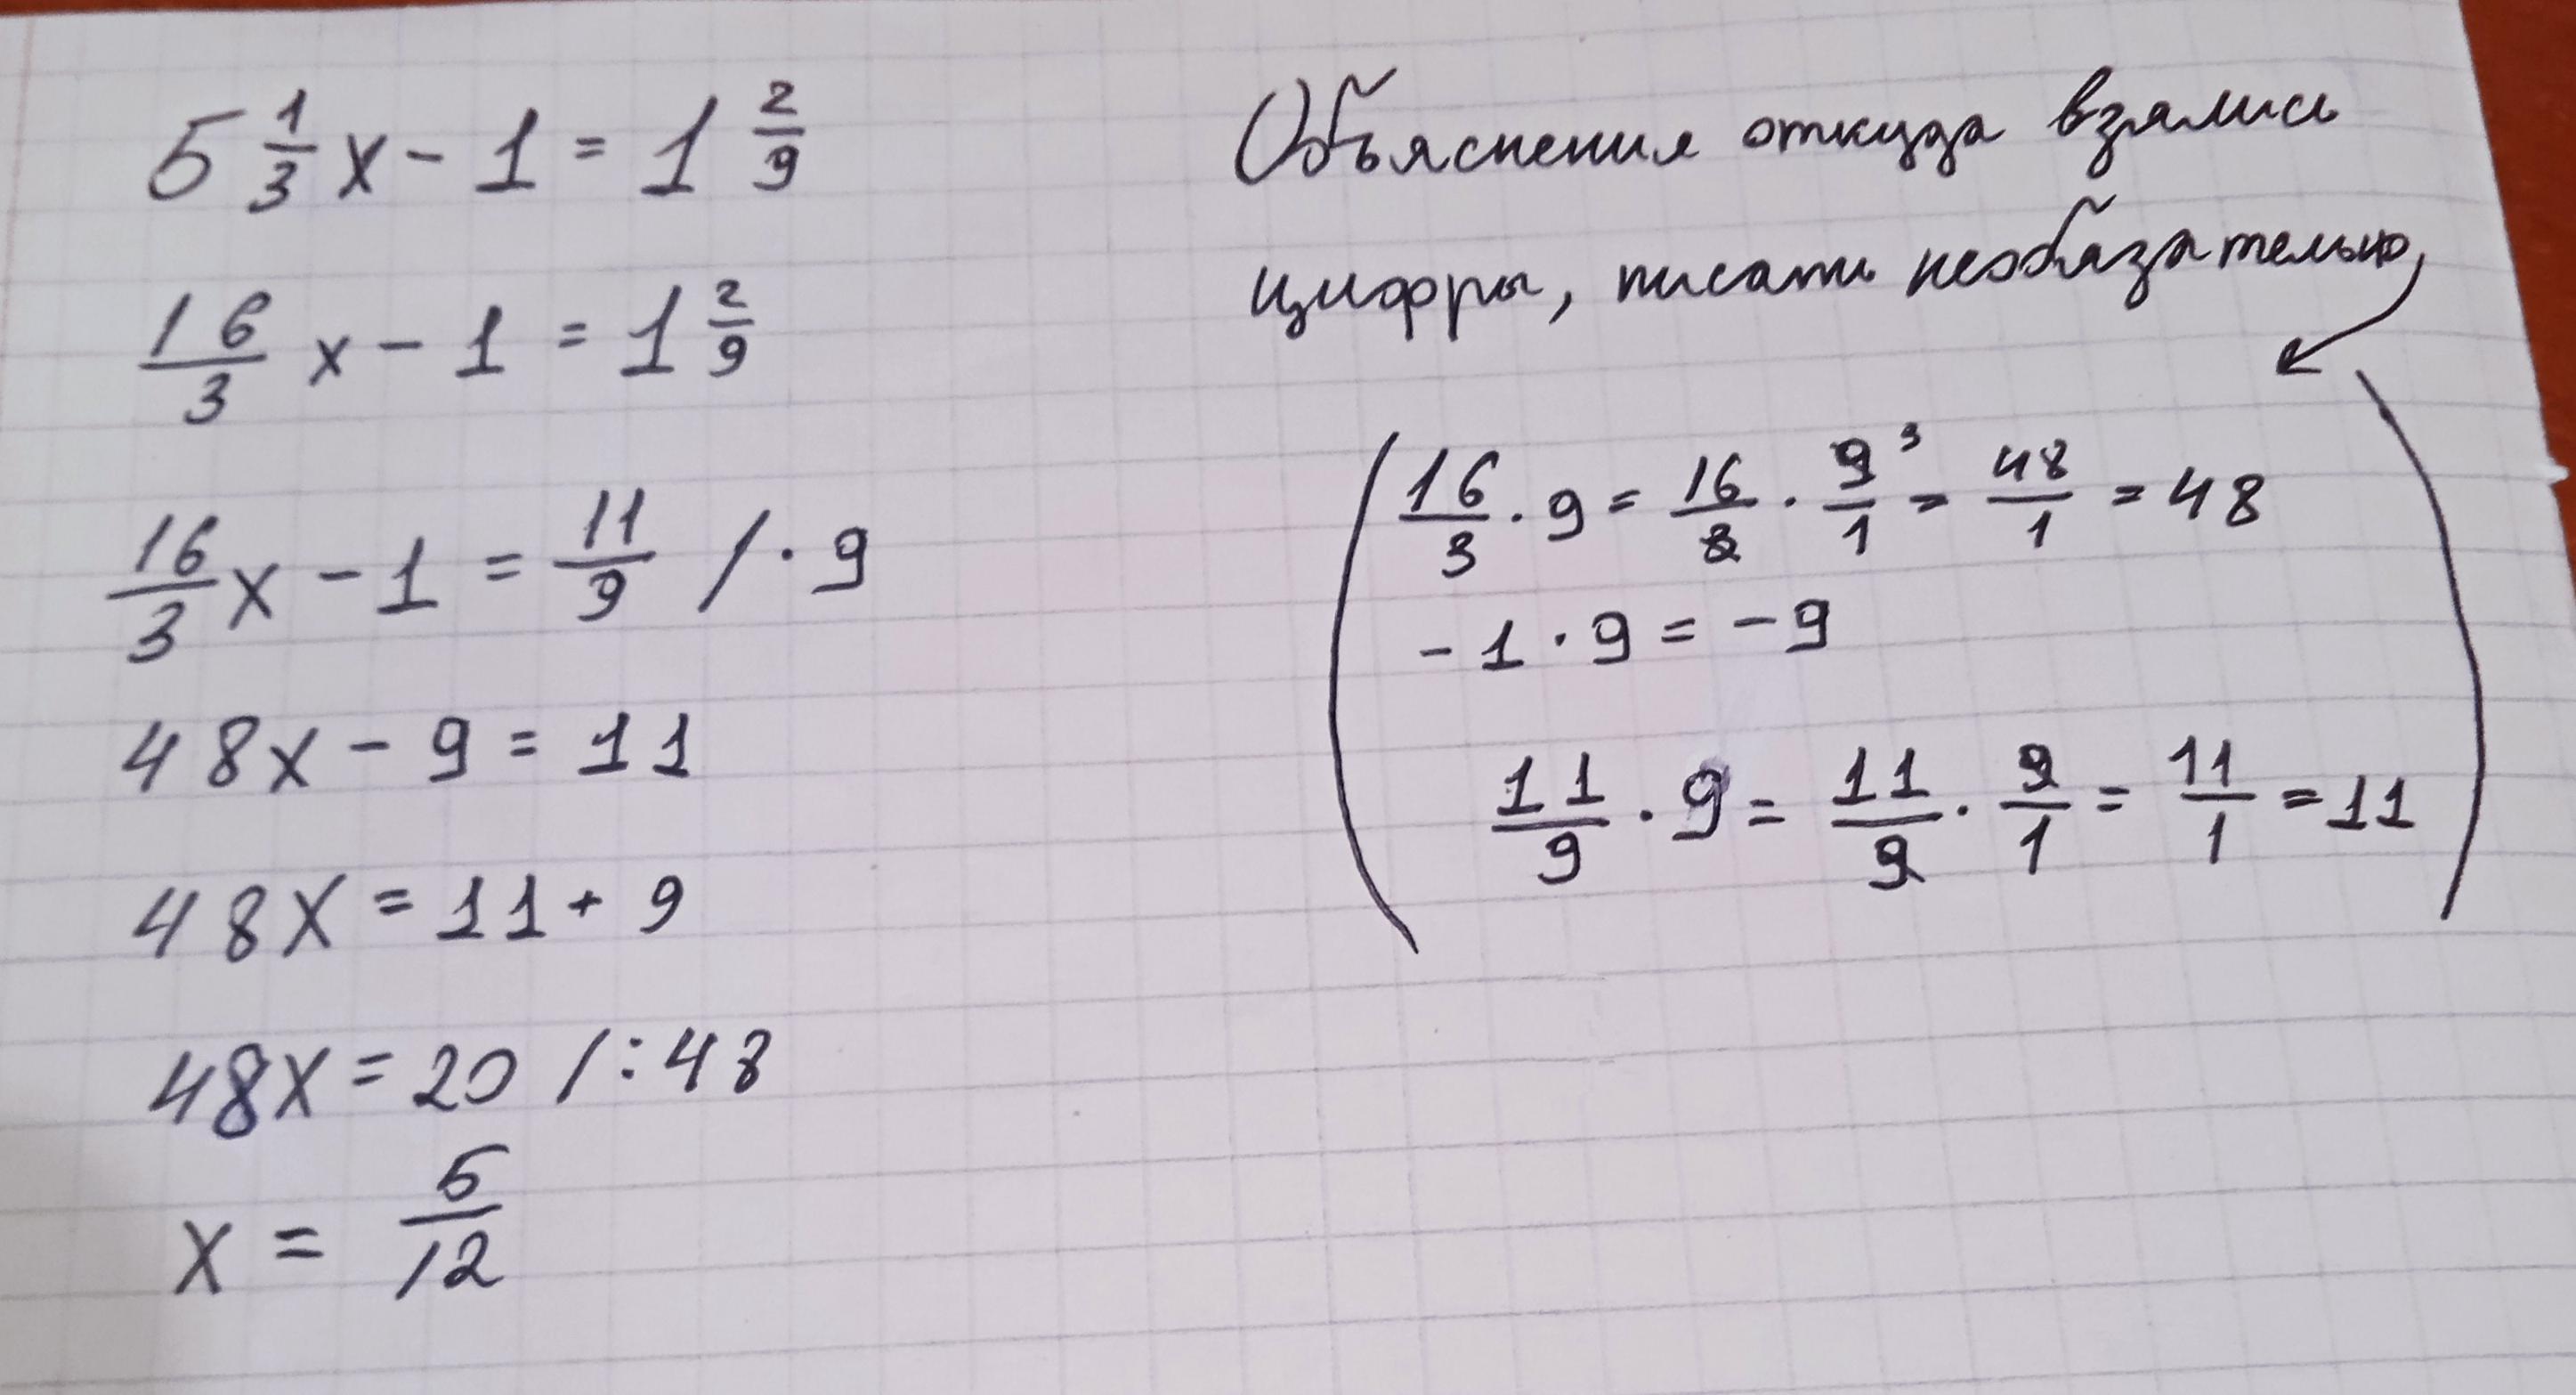 5 1/3 x - 1 = 1 2/9
16/3 x - 1 = 1 2/9
16/3 x - 1 = 11/9 / · 9
48x - 9 = 11
48x = 11 + 9
48x = 20 /:48
x = 5/12
Объяснения откуда взялись
цифры, писать необязательно
(16/3 · 9 = 16/3 · 9/1 ³ = 48/1 = 48
-1 · 9 = -9
11/9 · 9 = 11/9 · 9/1 = 11/1 = 11)